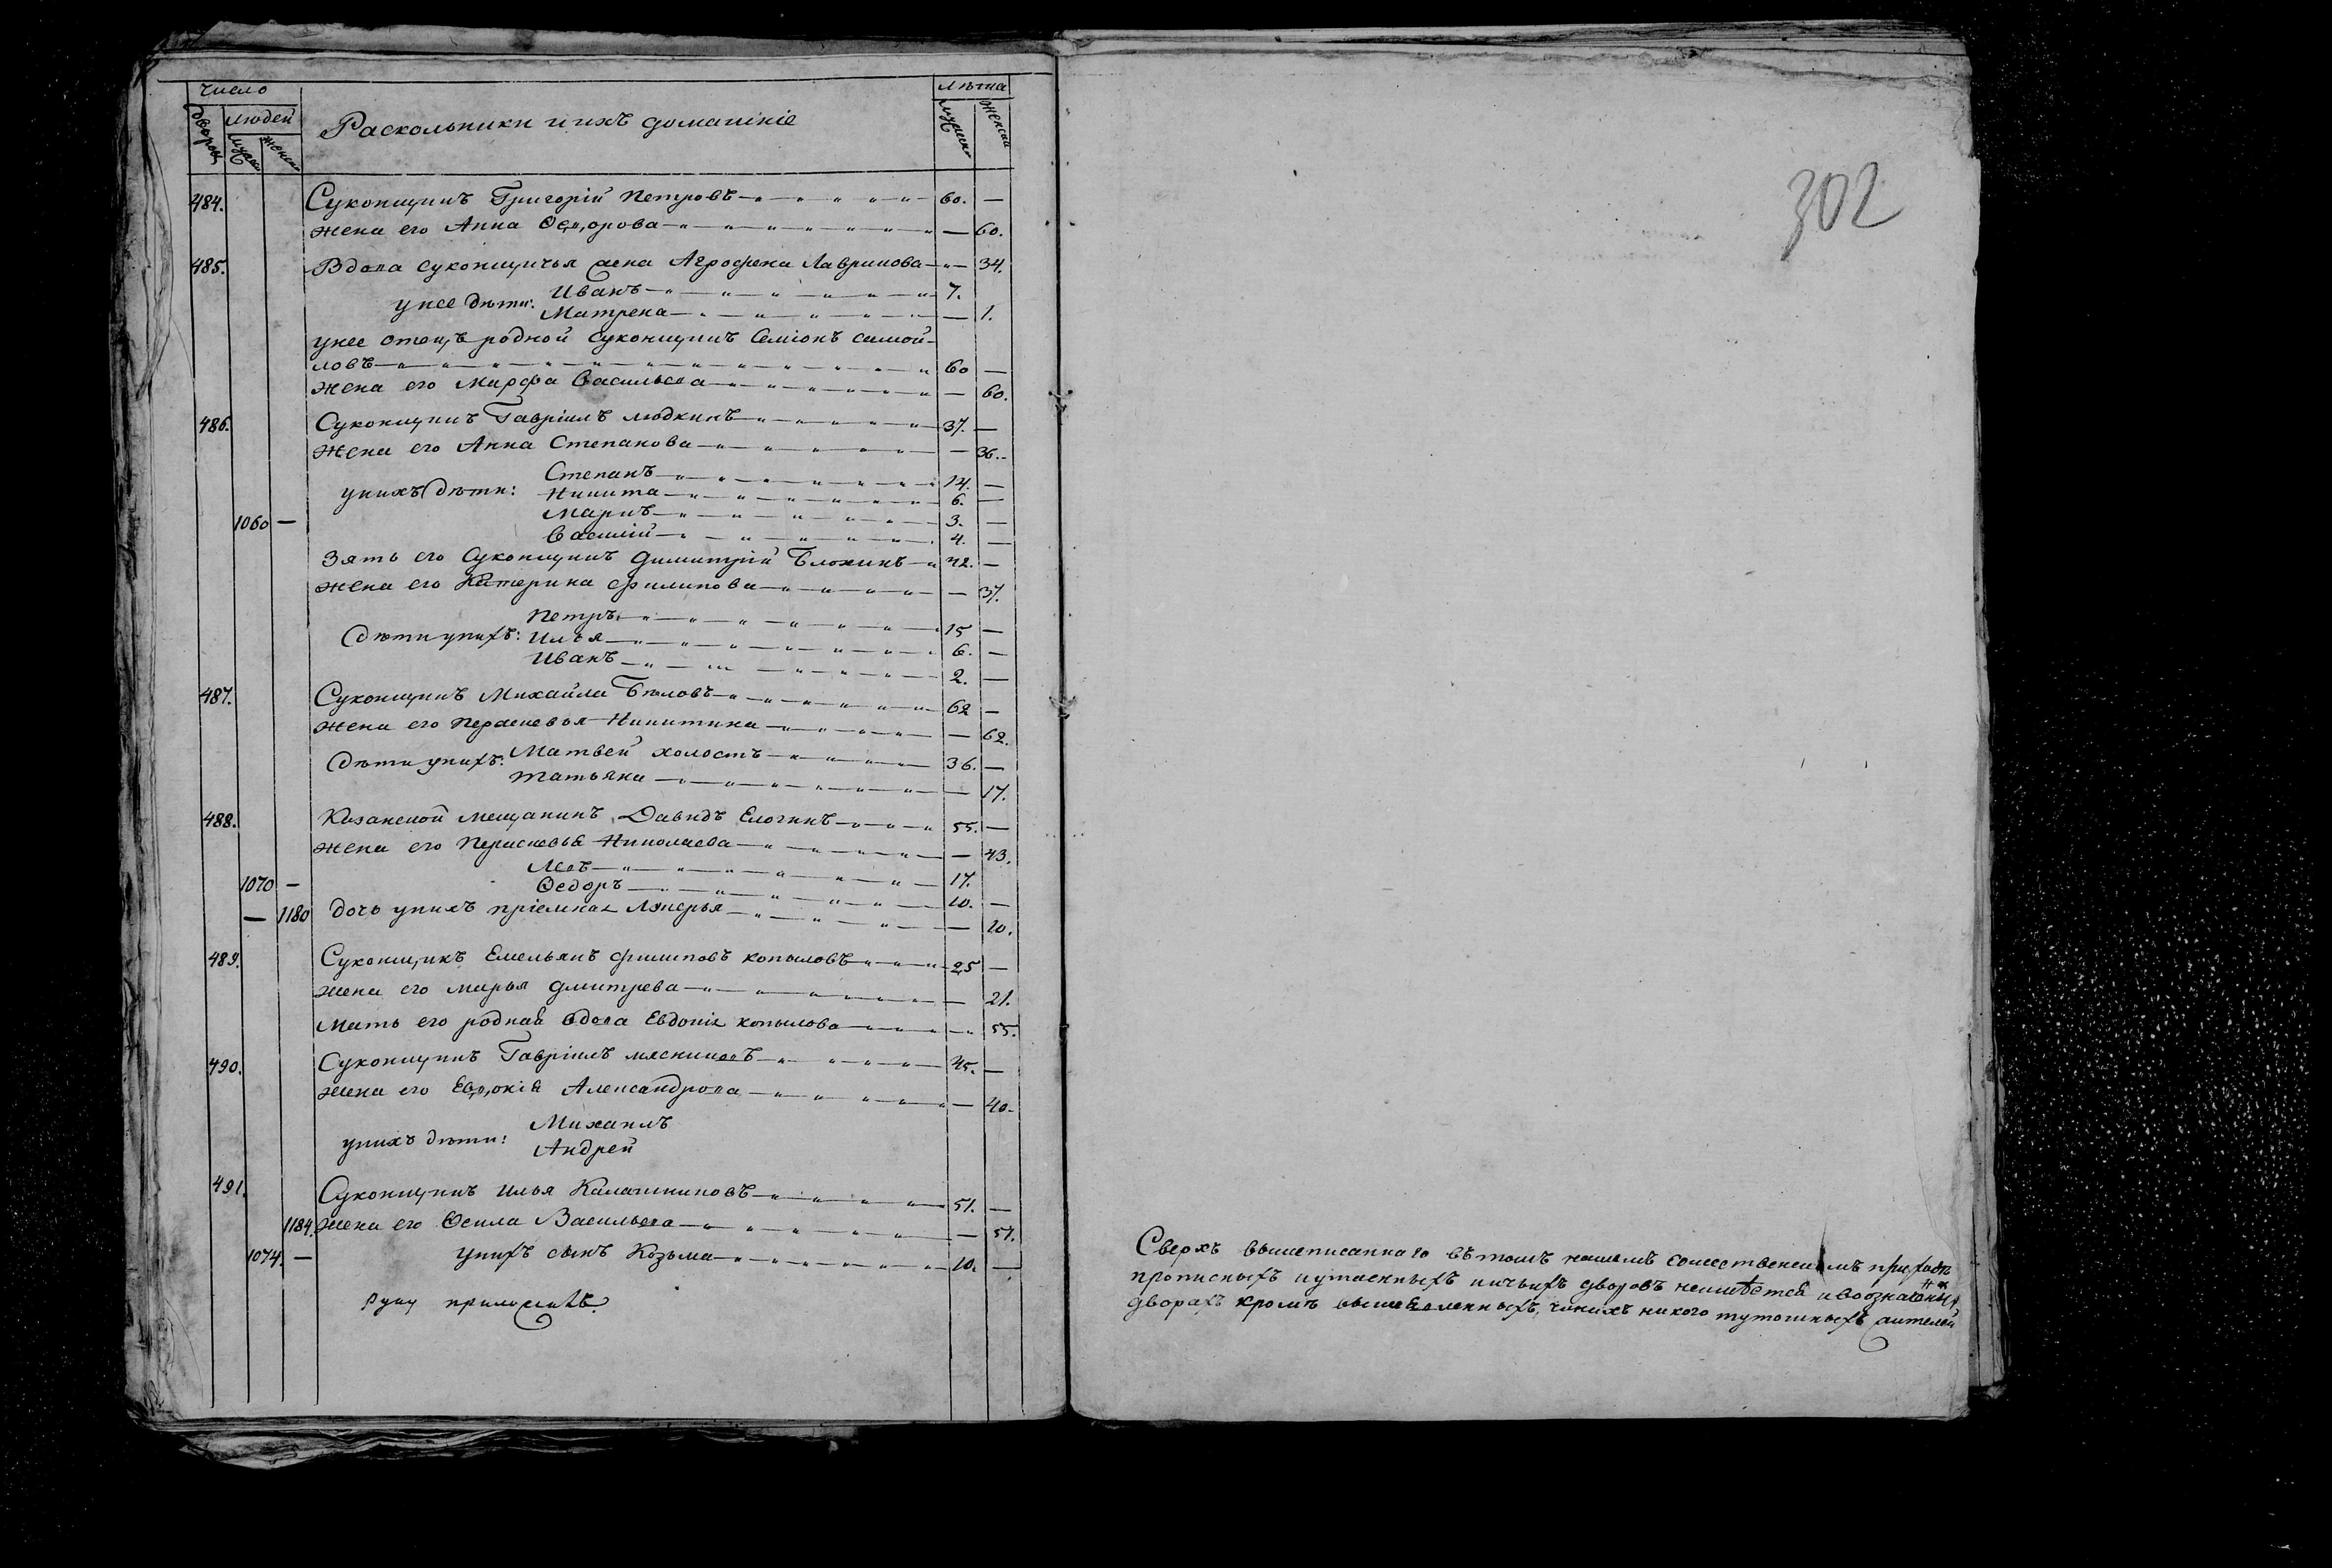 Число
людей
лѣта
дворовъ
мужес
женск
Раскольники и ихъ домашнiе
мужеск
женска
484. Суконщикъ Григорiй Петровъ 60. —
жена его Анна Ѳедорова — 60.
485. Вдова суконщичья жена Агрофена Лавринова — 34.
унее дѣти: Иванъ 7.
Матрена — 1.
унее отецъ родной суконщикъ Семiонъ самой-
ловъ 60 —
жена его Марфа Васильева — 60.
486. Суконщикъ Гаврiилъ людкинъ 37. —
жена его Анна Степанова — 36.
унихъ дѣти: Степанъ 14. —
Никита 6. —
1060 — Маркъ 3. —
Василiй 4. —
Зять его Суконщикъ Димитрiй Блохинъ 42. —
жена его Катерина филипова — 37.
Петръ 15 —
дѣти унихъ: Илья 6. —
Иванъ 2. —
487. Суконщикъ Михайла Бѣловъ 62 —
жена его Пераскевья Никитина — 62.
дѣти унихъ: Матвей холостъ 36. —
татьяна — 17.
488. Казанской мещанинъ Давидъ Елогинъ 55. —
жена его Пераскевья Николаева — 43.
Левъ 17.
1070 — Ѳедоръ 10. —
— 1180 дочь унихъ прiемная Лукерья — 20.
489. Суконщикъ Емельянъ филиповъ копыловъ 25 —
жена его марья дмитрева — 21.
мать его родная вдова Евдокiя копылова — 55.
490. Суконщикъ Гаврiилъ мясниковъ 45. —
жена его Евдокiя Александрова — 40.
Михаилъ
унихъ дѣти:
Андрей
491. Суконщикъ илья Калашниковъ 51. —
1184. жена его Ѳекла Васильева — 51.
1074. — унихъ сынъ Козьма 10. —
руку приложилъ.
302
Сверхъ вышеписаннаго вътомъ нашемъ сошественскомъ приходѣ
прописныхъ иутаенныхъ ничьихъ дворовъ неимѣется ивоозначенныхъ
дворахъ кромѣ вышеявленныхъ, чиихъ никого тутошныхъ жителей